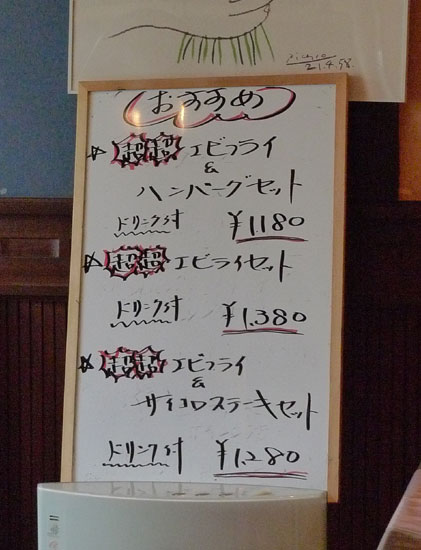 Picasso
21.4.58.
おすすめ
☆超超エビフライ
&
ハンバーグセット
ドリンク付 ¥1180
☆超超エビライセット
ドリンク付 ¥1.380
☆超超エビフライ
&
サイコロステーキセット
ドリンク付 ¥1.280